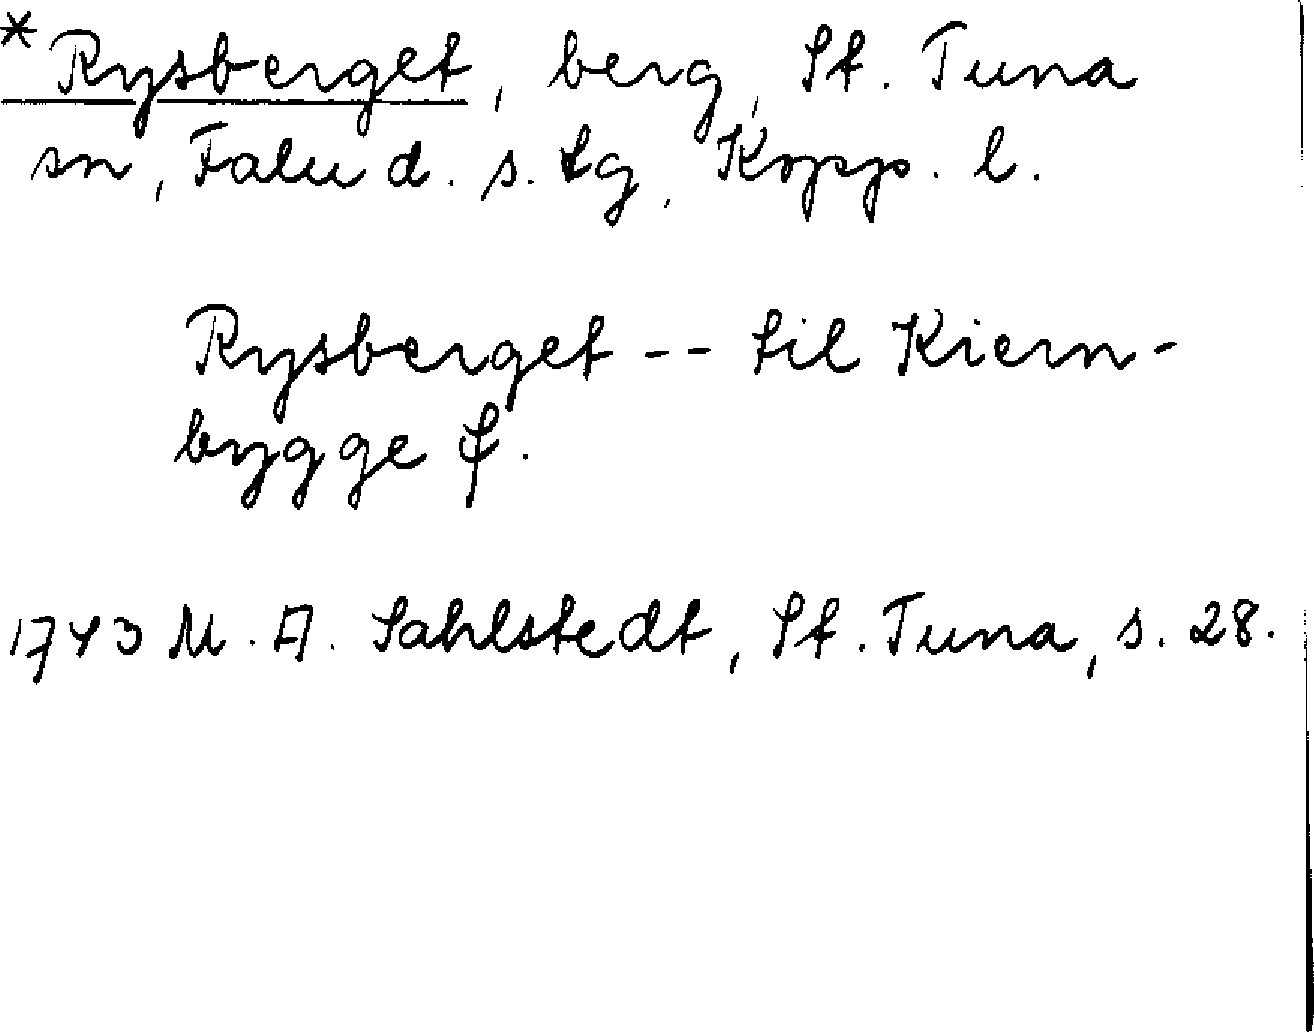 *Rysberget, berg, St. Tuna
sn, Falu d. s. tg, Kopp. l.
Rysberget -- til Kiern-
bygge f.
1743 M. A. Sahlstedt, St. Tuna, s. 28.